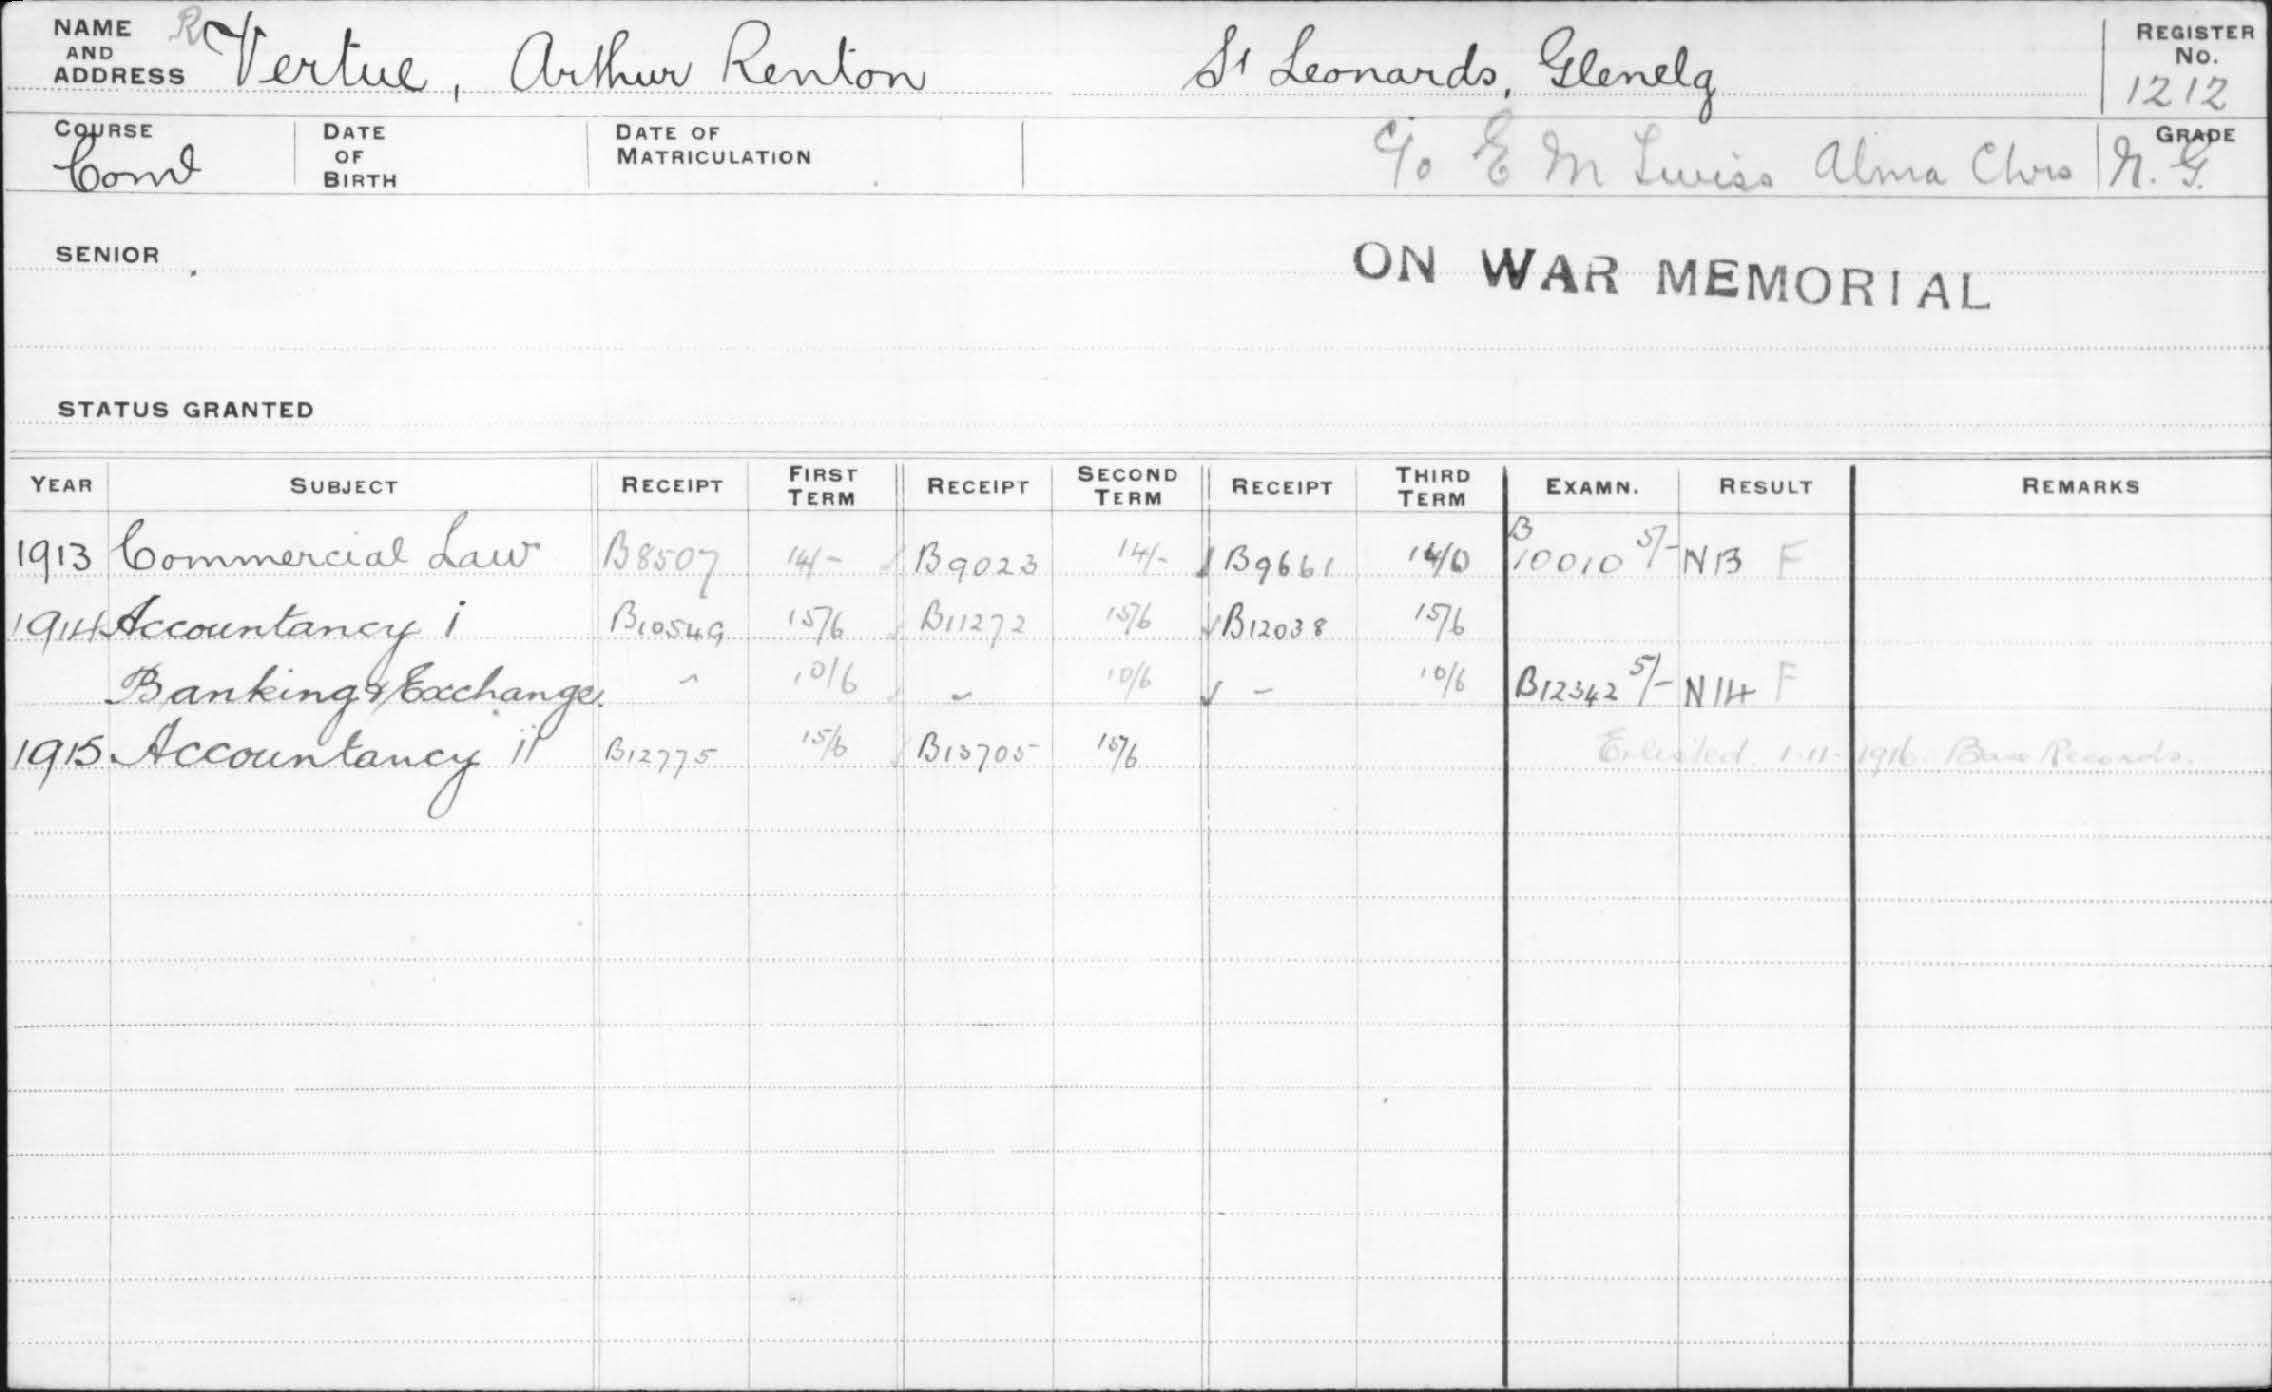 NAME AND ADDRESS R Vertue, Arthur Renton St Leonards, Glenelg REGISTER No. 1212
COURSE Coml DATE OF BIRTH DATE OF MATRICULATION c/o E M Alma Chrs GRADE N. G.
SENIOR ON WAR MEMORIAL
STATUS GRANTED
YEAR SUBJECT RECEIPT FIRST TERM RECEIPT SECOND TERM RECEIPT THIRD TERM EXAMN. RESULT REMARKS
1913 Commercial Law B8507 14/- B9023 14/- B9661 14/0 B10010 5/- N13 F
1914 Accountancy i B10549 15/6 B11272 15/6 B12038 15/6
Banking & Exchange. " 10/6 - 10/6 - 10/6 B12342 5/- N14 F
1915 Accountancy ii B12775 15/6 B13705 15/6 Enlisted. 1-11-1916. Base Records.